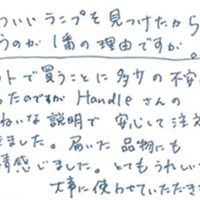 ついいランプを見つけたから
うのが1番の理由ですが。
ットで買うことに多少の不安
ったのですがHandleさんの
ねいな説明で安心して注文
きました。届いた品物にも
情感じました。とてもうれしい
大事に使わせていただき